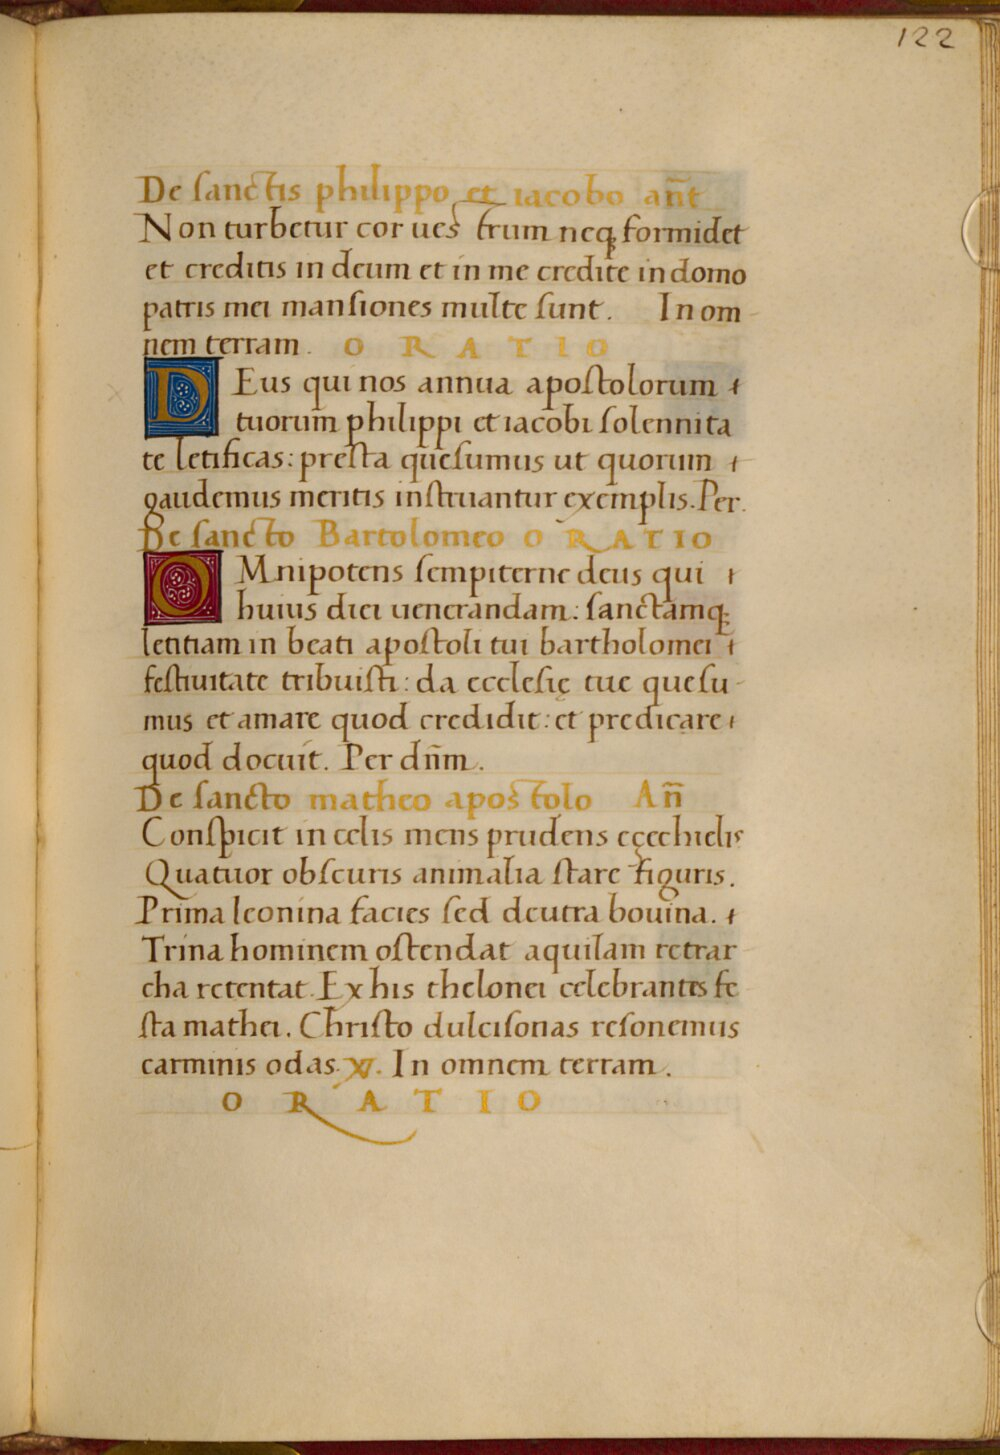 122
De sanctis philippo et iacobo añt
Non turbetur cor uestrum neq; formidet
et creditis in deum et in me credite in domo
patris mei mansiones multe sunt. In om
nem terram. ORATIO
DEus qui nos annua apostolorum
tuorum philippi et iacobi solennita
te letificas: presta quesumus ut quorum
gaudemus meritis instruantur exemplis. Per.
De sancto Bartolomeo ORATIO
OMnipotens sempiterne deus qui
huius diei uenerandam: sanctamq;
letitiam in beati apostoli tui bartholomei
festiuitate tribuisti: da ecclesię tue quesu
mus et amare quod credidit: et predicare
quod docuit. Per dñm.
De sancto matheo apostolo Añ
Conspicit in celis mens prudens eçechielis
Quatuor obscuris animalia stare figuris.
Prima leonina facies sed deutra bouina.
Trina hominem ostendat aquilam retrar
cha retentat. Ex his thelonei celebrantes fe
sta mathei. Christo dulcisonas resonemus
carminis odas. ℣. In omnem terram.
ORATIO